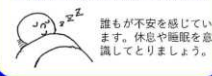 zzZ
誰もが不安を感じてい
ます。休息や睡眠を意
識してとりましょう。